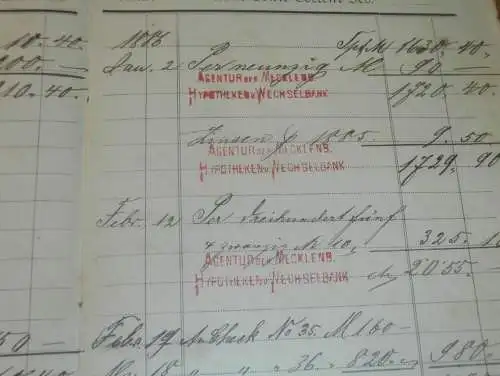 10.-40.-
1886
Jan. 2 Per neunzig M 90 —
1630.-40.-
AGENTUR DER MECKLENB.
HYPOTHEKEN U. WECHSELBANK
210.-40.-
1720.-40.-
Zinsen p. 1885. 9.50
AGENTUR DER MECKLENB.
HYPOTHEKEN U. WECHSELBANK
1729.90
Febr. 12 Per dreihundert fünf
& zwanzig M 325.-
AGENTUR DER MECKLENB.
HYPOTHEKEN U. WECHSELBANK
2055.-
Febr. 19 An Check No 35. M 160 —
18 " " 36 820.- 980